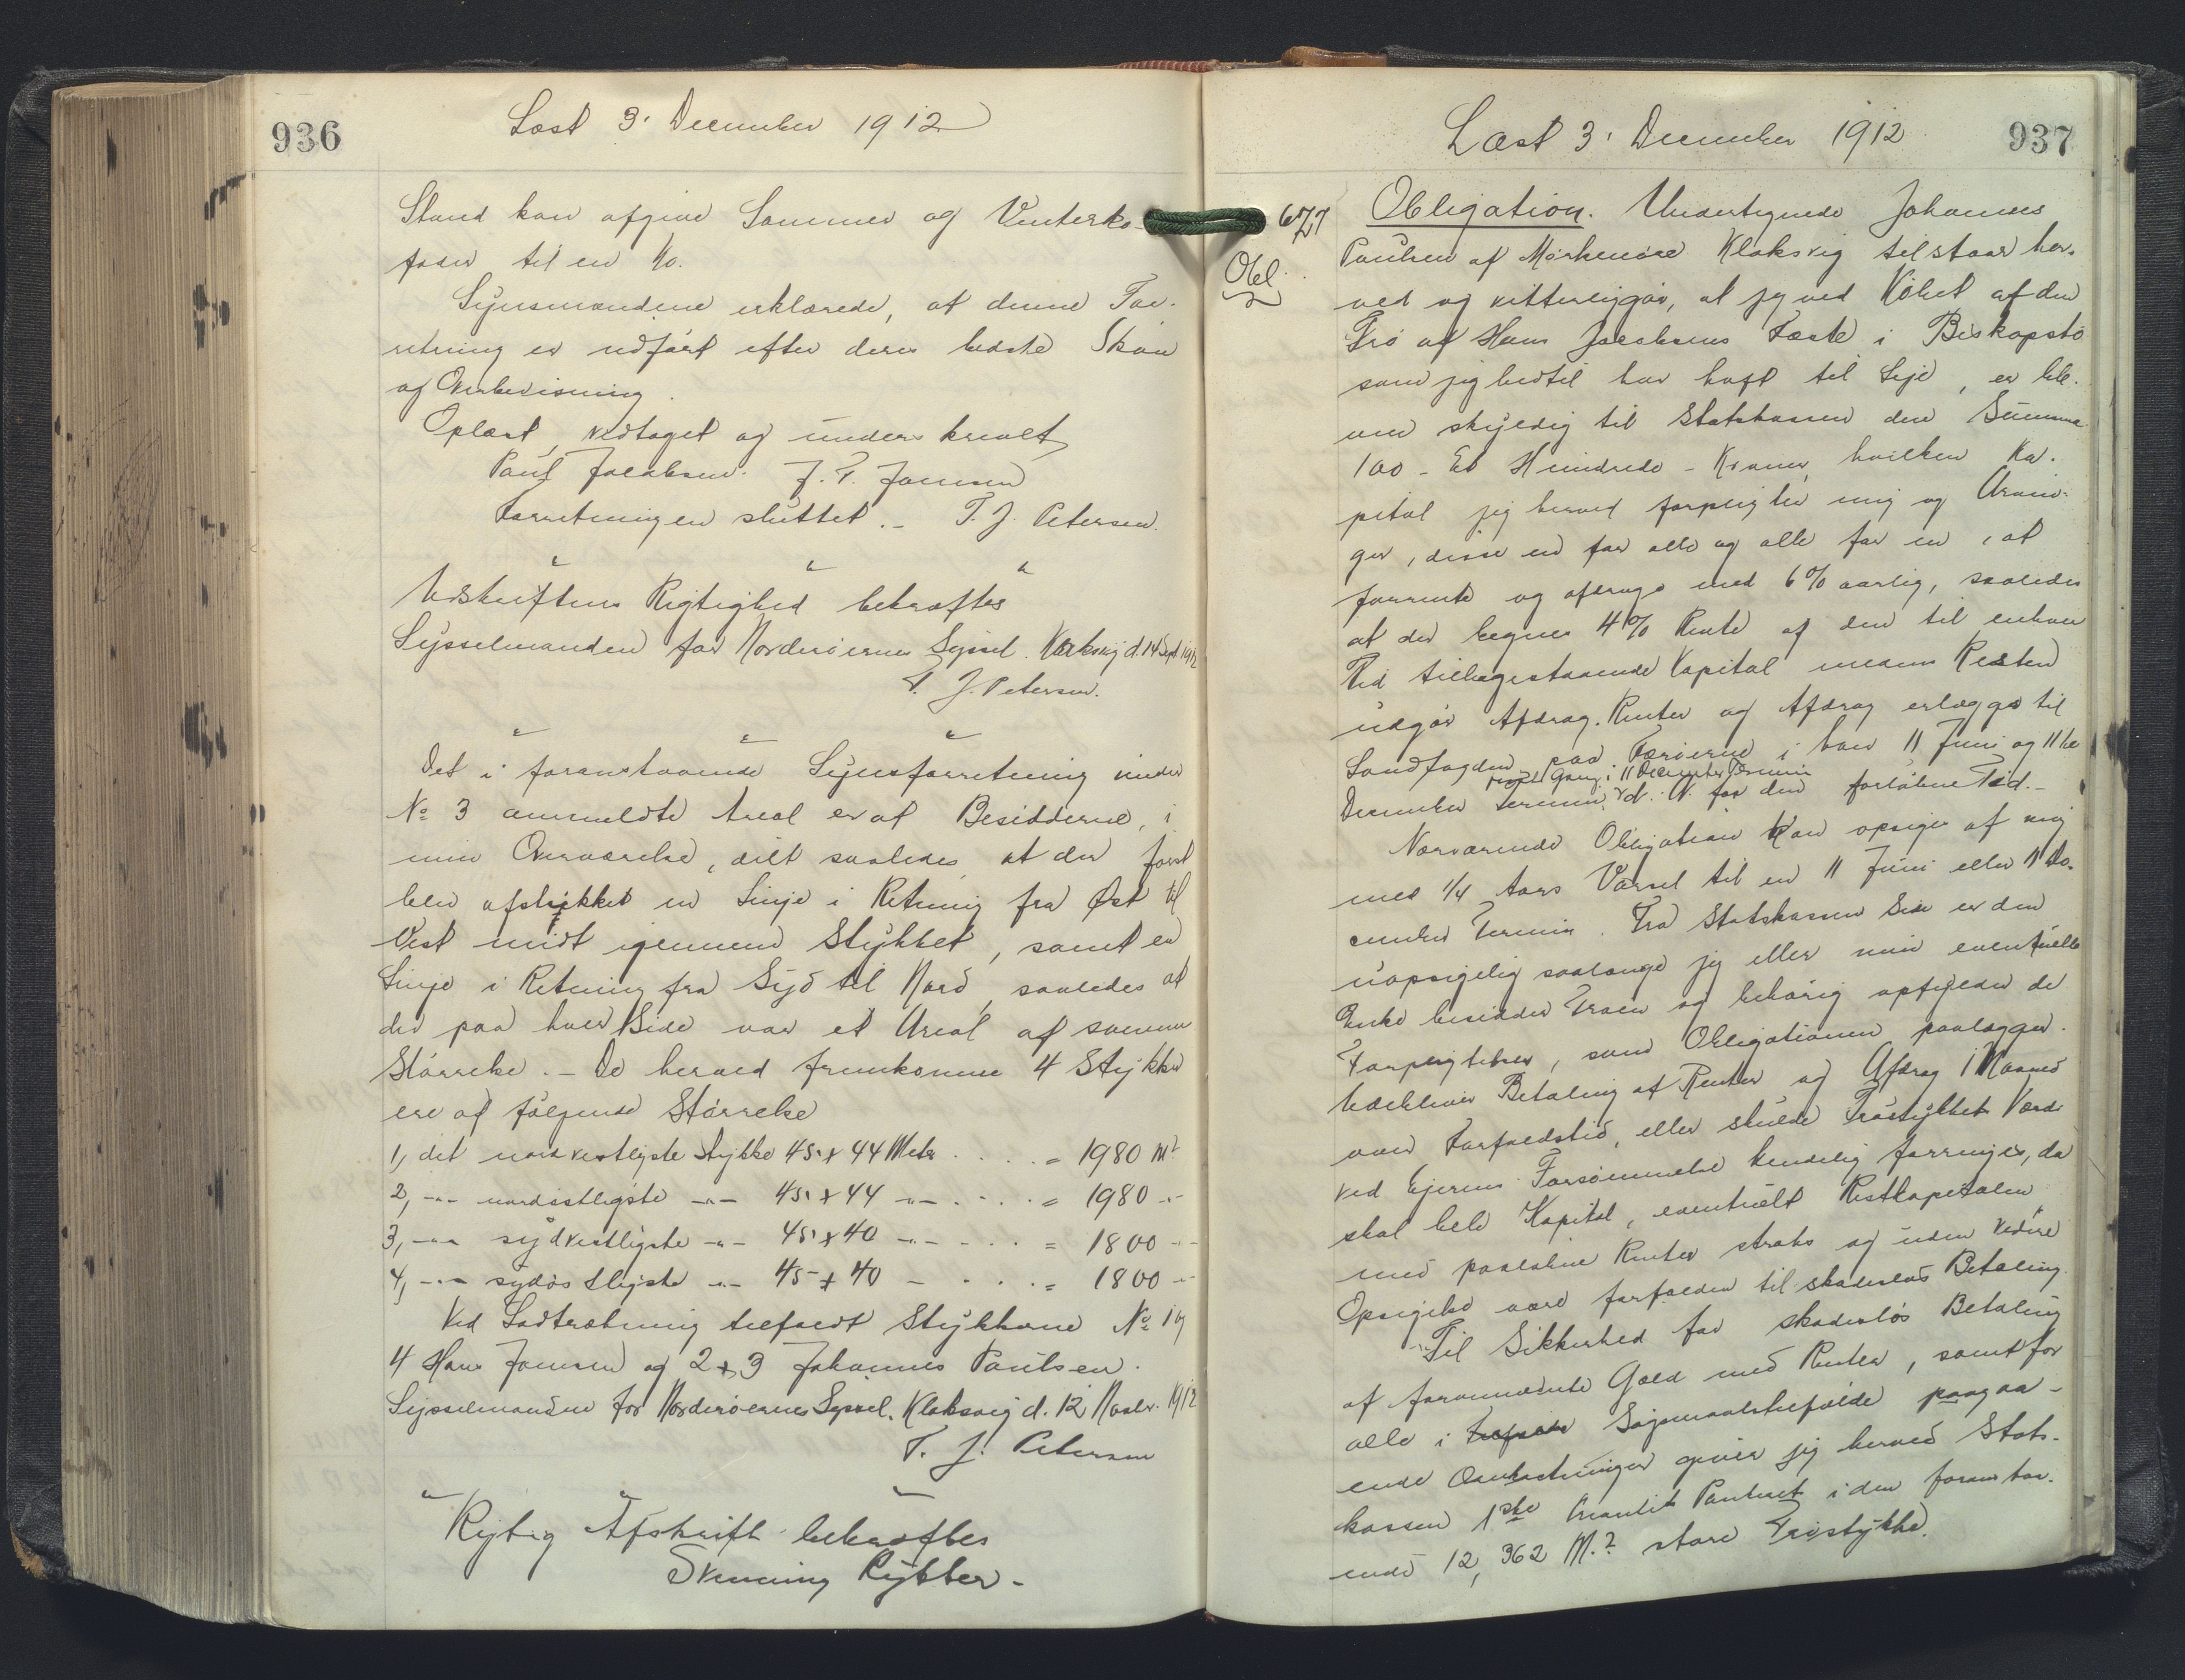 936
Læst 3' December 1912
Stand kan afgive Sommer og Vinterko-
foder til en Ko.
Synsmændene erklærede, at denne For-
retning er udført efter deres bedste Skøn
og Overbevisning.
Oplæst, vedtaget og underskrevet
Paul Jacobsen. J. P. Joensen
Forretningen sluttet. - P. J. Petersen.
Udskriftens Rigtighed bekræftes
Sysselmanden for Norderøernes Syssel. Klaksvig d. 14 Sept 1912
P. J. Petersen.
Det i foranstaaende Synsforretning under
No 3 anmeldte Areal er af Besidderne, i
min Overværelse, delt saaledes, at der først
blev afstukket en Linje i Retning fra Øst til
Vest midt igennem Stykket, samt en
Linje i Retning fra Syd til Nord, saaledes at
der paa hver Side var et Areal af samme
Størrelse. - De herved fremkomne 4 Stykker
ere af følgende Størrelse
1, det nordvestligste Stykke 45 x 44 Meter . . . . = 1980 M2
2, -"- nordøstligste -"- 45 x 44 -"- . . . . = 1980 -"-
3, -"- sydvestligste -"- 45 x 40 -"- . . . . = 1800 -"-
4, -"- sydøstligste -"- 45 x 40 - . . . . = 1800 -"-
Ved Lodtrækning tilfaldt Stykkerne No 1 og
4 Hans Joensen og 2 & 3 Johannes Poulsen.
Sysselmanden for Norderøernes Syssel. Klaksvig d. 12 Novbr. 1912
P. J. Petersen
Rigtig Afskrift bekræftes
Svenning Rytter -
937
Læst 3' December 1912
677
Obl.
Obligation. Undertegnede Johannes
Poulsen af Mørkenøre Klaksvig tilstaar her-
ved og vitterliggør, at jeg ved Købet af den
Trø af Hans Jacobsens Fæste i Biskopstø
som jeg hidtil har haft til Leje, er ble-
ven skyldig til Statskassen den Summa
100 - Et Hundrede - Kroner, hvilken Ka-
pital jeg herved forpligter mig og Arvin-
ger, disse en for alle og alle for en, at
forrente og afdrage med 6% aarlig, saaledes
at der regnes 4% Rente af den til enhver
Tid tilbagestaaende Kapital medens Resten
udgør Afdrag. Renter og Afdrag erlægges til
Landfogden paa Færøerne i hver 11 Juni og 11te
første Gang i 11 December Termin
December Termin, d. A. for den forløbne Tid. -
Nærværende Obligation kan opsiges af mig
med 1/4 Aars Varsel til en 11 Juni eller 11 De-
cember Termin. Fra Statskassens Side er den
uopsigelig saalænge jeg eller min eventuelle
Enke besidder Trøen og behørig opfylder de
Forpligtelser, som Obligationen paalægger.
Udebliver Betaling af Renter og Afdrag 1 Maaned
over Forfaldstid, eller skulde Trøstykket Værdi
ved Ejerens Forsømmelse kendelig forringes, da
skal hele Kapital, eventuelt Restkapitalen
med paaløbne Renter straks og uden videre
Opsigelse være forfalden til skadesløs Betaling.
Til Sikkerhed for skadesløs Betaling
af forannævnte Gæld med Renter, samt for
alle i Søgsmaalstilfælde paagaa-
ende Omkostninger giver jeg herved Stats-
kassen 1ste Prioritets Panteret i den foranstaa-
ende 12,362 M.2 store Trøstykke.